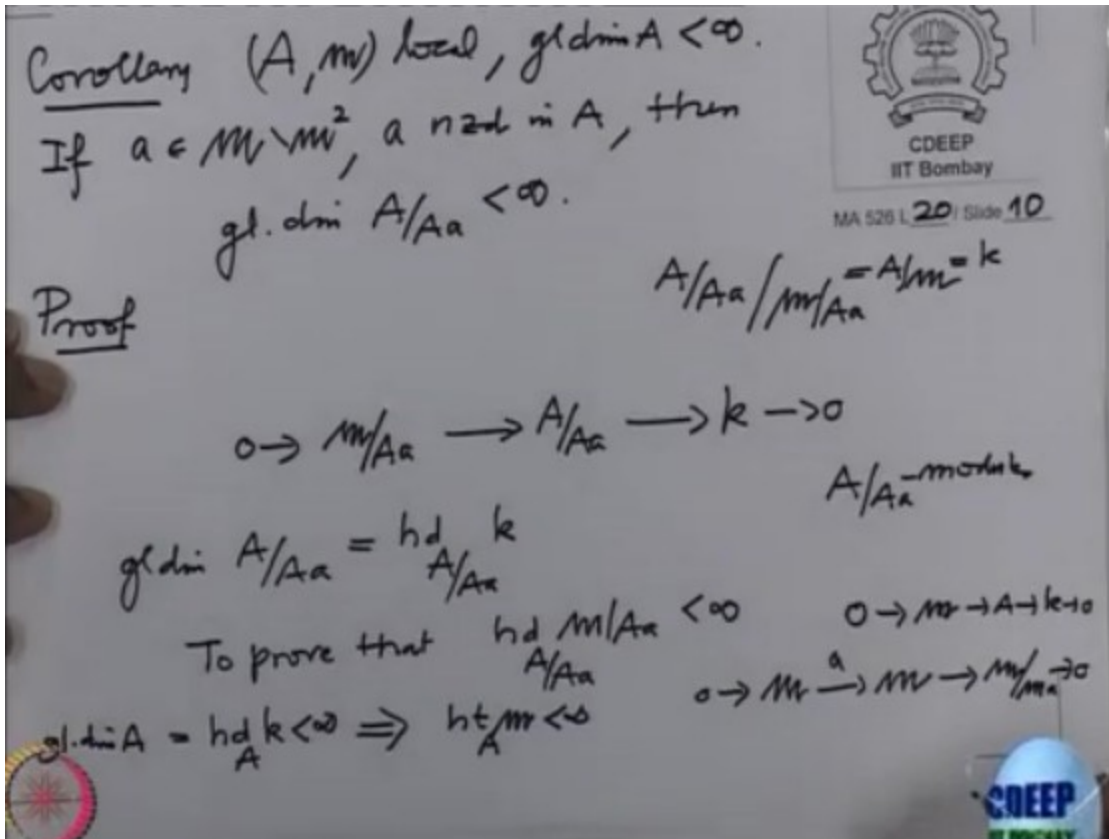 Corollary (A, m) local, gldim A < ∞.
If a ∈ m \ m², a nzd in A, then
gl. dim A/Aa < ∞.
CDEEP
IIT Bombay
MA 526 L 20 / Slide 10
A/Aa / m/Aa = A/m = k
Proof
0 → m/Aa → A/Aa → k → 0
A/Aa-module
gldim A/Aa = hd_{A/Aa} k
To prove that hd_{A/Aa} m/Aa < ∞
0 → m → A → k → 0
0 → m →^a m → m/ma → 0
gl.dim A = hd_A k < ∞ ⇒ ht_A m < ∞
CDEEP
IIT BOMBAY